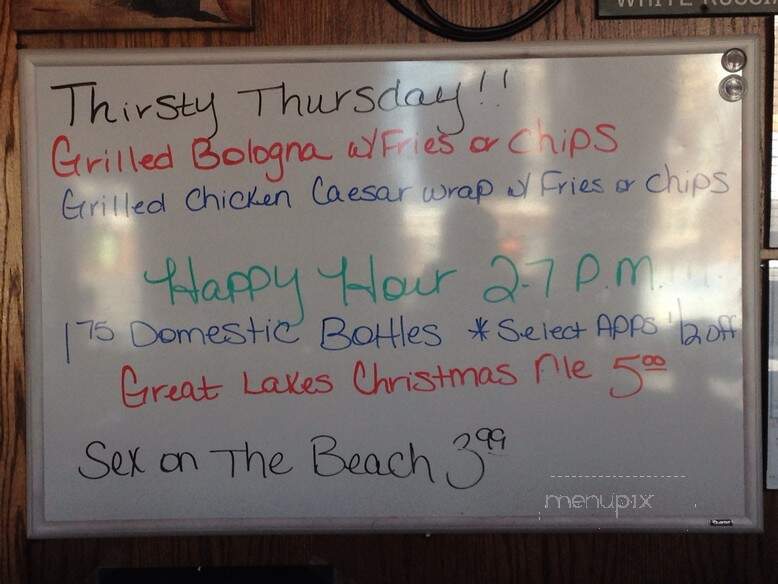 Thirsty Thursday!!
Grilled Bologna w/ Fries or Chips
Grilled Chicken Caesar wrap w/ Fries or Chips
Happy Hour 2-7 P.M.
1 75 Domestic Bottles * Select APPS 1/2 off
Great Lakes Christmas Ale 5 00
Sex on The Beach 3 99
menupix